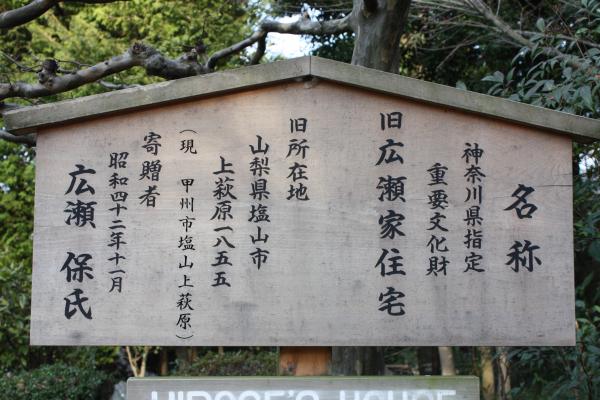 名称
神奈川県指定
重要文化財
旧広瀬家住宅
旧所在地
山梨県塩山市
上萩原一八五五
（現 甲州市塩山上萩原）
寄贈者
昭和四十二年十一月
広瀬 保氏
HIROSE'S HOUSE